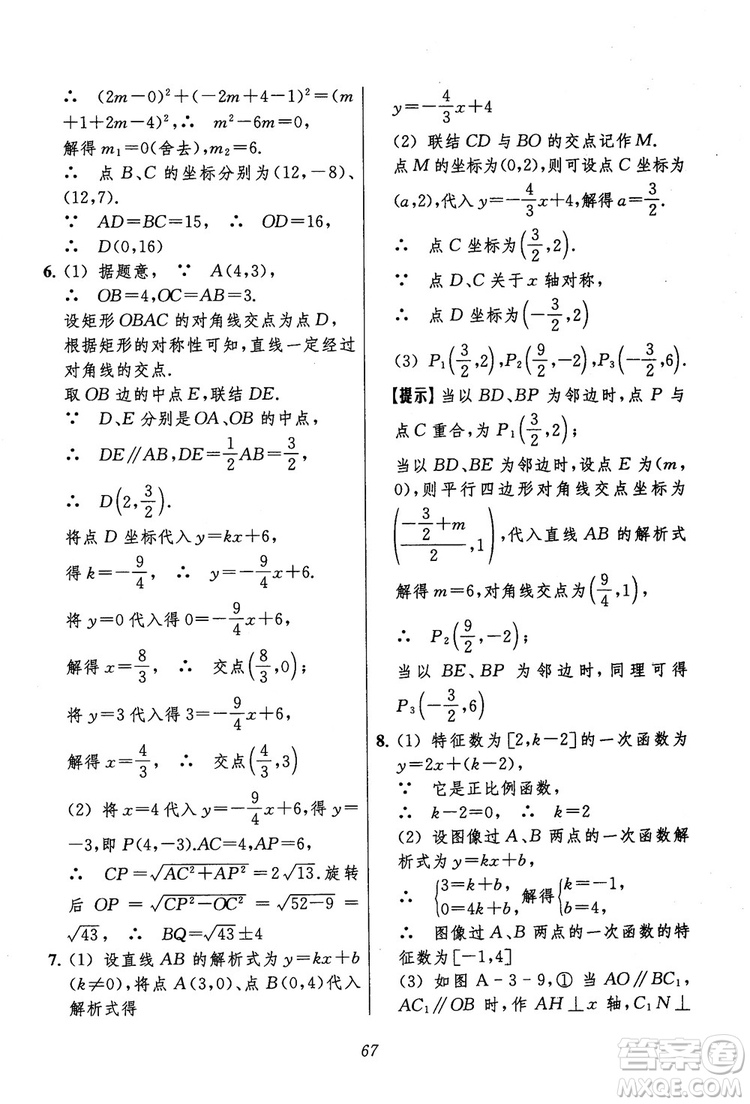 ∴ (2m－0)²＋(－2m＋4－1)²＝(m
＋1＋2m－4)², ∴ m²－6m＝0,
解得 m₁＝0(舍去), m₂＝6.
∴ 点 B、C 的坐标分别为(12,－8)、
(12,7).
∵ AD＝BC＝15, ∴ OD＝16,
∴ D(0,16)
6. (1) 据题意, ∵ A(4,3),
∴ OB＝4,OC＝AB＝3.
设矩形 OBAC 的对角线交点为点 D,
根据矩形的对称性可知,直线一定经过
对角线的交点.
取 OB 边的中点 E,联结 DE.
∵ D、E 分别是 OA、OB 的中点,
∴ DE∥AB,DE＝1/2 AB＝3/2,
∴ D(2,3/2).
将点 D 坐标代入 y＝kx＋6,
得 k＝－9/4, ∴ y＝－9/4 x＋6.
将 y＝0 代入得 0＝－9/4 x＋6,
解得 x＝8/3, ∴ 交点(8/3,0);
将 y＝3 代入得 3＝－9/4 x＋6,
解得 x＝4/3 ∴ 交点(4/3,3)
(2) 将 x＝4 代入 y＝－9/4 x＋6,得 y＝
－3,即 P(4,－3).AC＝4,AP＝6,
∴ CP＝√(AC²＋AP²)＝2√13. 旋转
后 OP＝√(CP²－OC²)＝√(52－9)＝
√43, ∴ BQ＝√43±4
7. (1) 设直线 AB 的解析式为 y＝kx＋b
(k≠0),将点 A(3,0)、点 B(0,4)代入
解析式得
y＝－4/3 x＋4
(2) 联结 CD 与 BO 的交点记作 M.
点 M 的坐标为(0,2),则可设点 C 坐标为
(a,2),代入 y＝－4/3 x＋4,解得 a＝3/2.
∴ 点 C 坐标为(3/2,2).
∵ 点 D、C 关于 x 轴对称,
∴ 点 D 坐标为(－3/2,2)
(3) P₁(3/2,2),P₂(9/2,－2),P₃(－3/2,6).
【提示】当以 BD、BP 为邻边时,点 P 与
点 C 重合,为 P₁(3/2,2);
当以 BD、BE 为邻边时,设点 E 为(m,
0),则平行四边形对角线交点坐标为
((－3/2＋m)/2,1),代入直线 AB 的解析式
解得 m＝6,对角线交点为(9/4,1),
∴ P₂(9/2,－2);
当以 BE、BP 为邻边时,同理可得
P₃(－3/2,6)
8. (1) 特征数为[2,k－2]的一次函数为
y＝2x＋(k－2),
∵ 它是正比例函数,
∴ k－2＝0, ∴ k＝2
(2) 设图像过 A、B 两点的一次函数解
析式为 y＝kx＋b,
∴ {3＝k＋b, 0＝4k＋b, 解得{k＝－1, b＝4,
∴ 图像过 A、B 两点的一次函数的特
征数为[－1,4]
(3) 如图 A-3-9,① 当 AO∥BC₁,
AC₁∥OB 时,作 AH⊥x 轴,C₁N⊥
67
答案卷
MXQE.COM